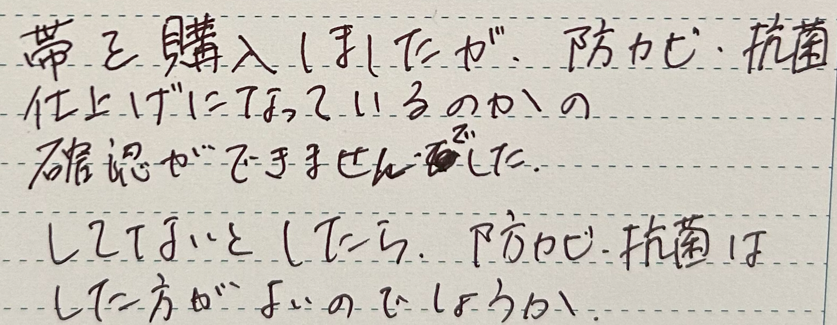 帯を購入しましたが、防カビ・抗菌
仕上げになっているのかの
確認ができませんでした.
してないとしたら、防カビ・抗菌は
した方がよいのでしょうか.